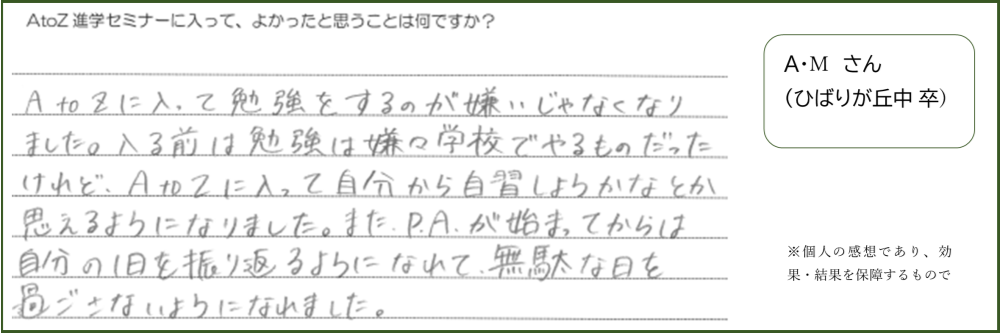 AtoZ 進学セミナーに入って、よかったと思うことは何ですか？
A to Zに入って勉強をするのが嫌いじゃなくなり
ました。入る前は勉強は嫌々学校でやるものだった
けれど、A to Zに入って自分から自習しようかなとか
思えるようになりました。また、P.A.が始まってからは
自分の1日を振り返るようになれて、無駄な日を
過ごさないようになれました。
A・M さん
（ひばりが丘中 卒）
※個人の感想であり、効
果・結果を保障するもので